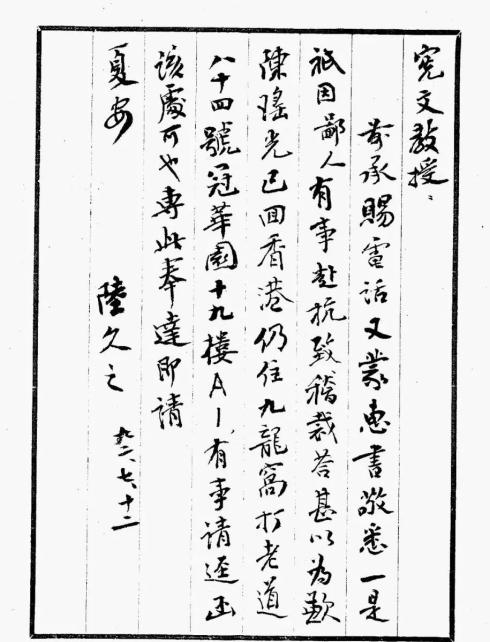 宪文教授：
前承賜電話又蒙惠書敬悉一是
祇因鄙人有事赴杭致稽裁荅甚以為歉
陳瑤光已回香港仍住九龍窩打老道
八十四號冠華園十九樓A1，有事請逕函
該處可也專此奉達即請
夏安
陸久之
九二、七、十二